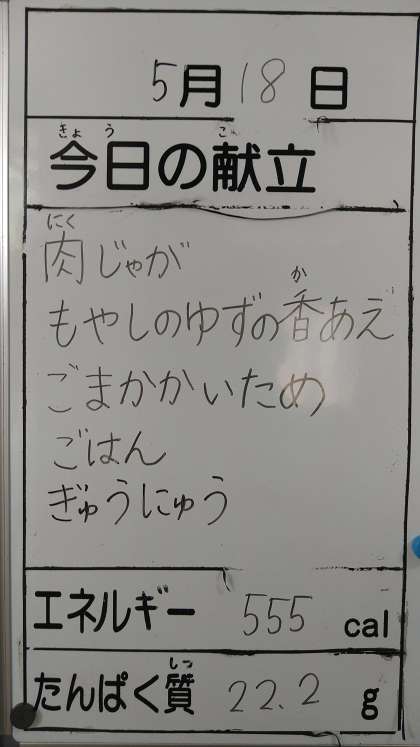 5月18日
今日の献立
肉じゃが
もやしのゆずの香あえ
ごまかかいため
ごはん
ぎゅうにゅう
エネルギー 555 cal
たんぱく質 22.2 g